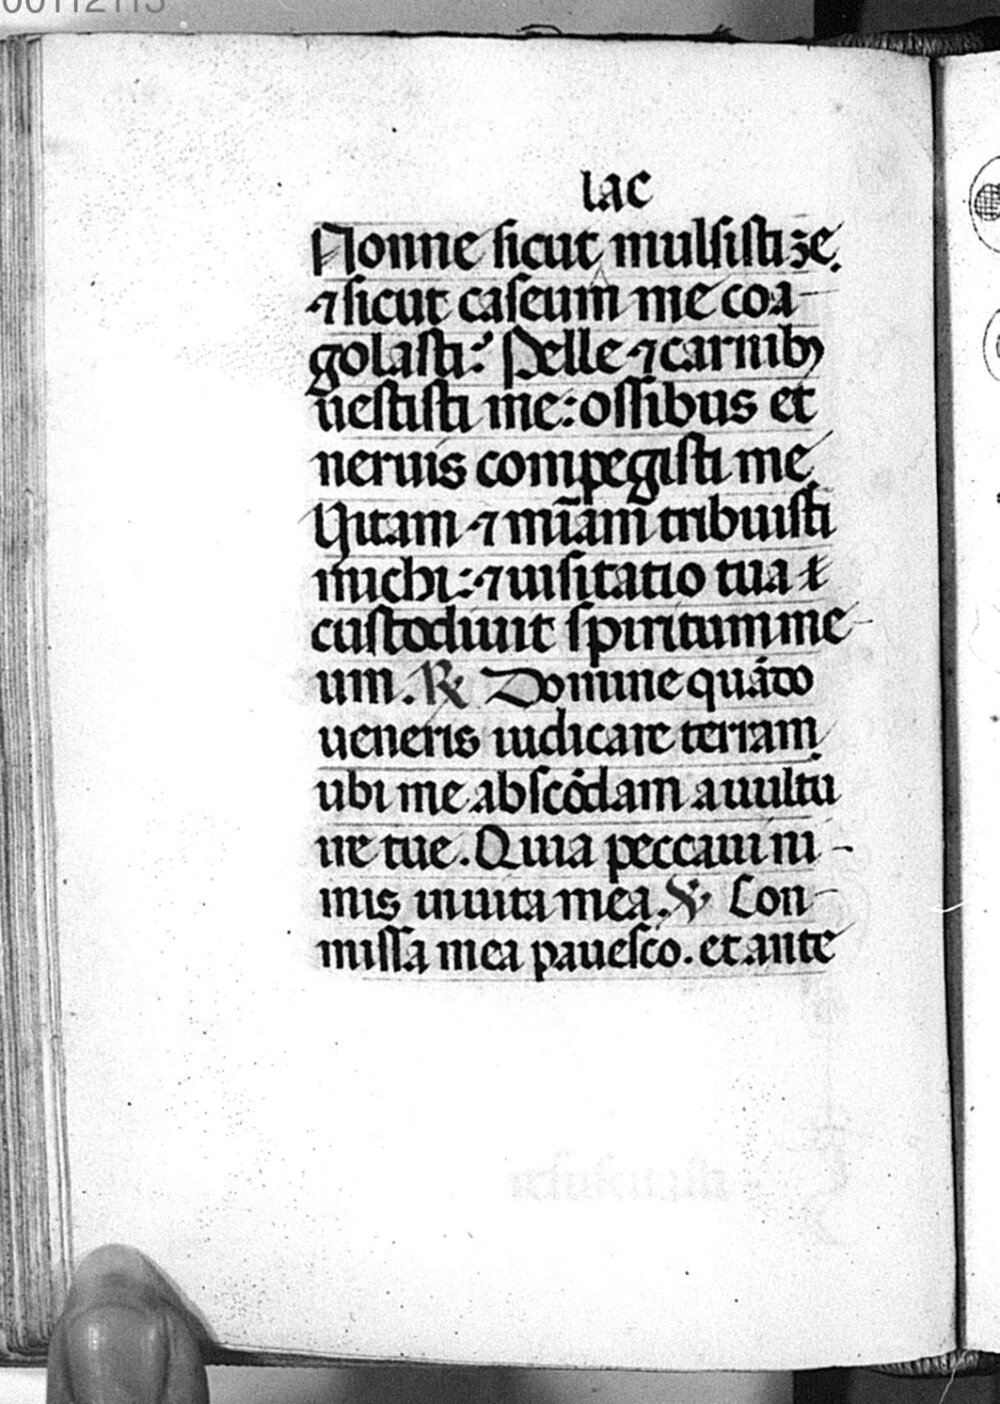 00112113
lac
Nonne sicut mulsisti ze.
⁊ sicut caseum me coa-
golasti: Pelle ⁊ carnibꝰ
uestisti me: ossibus et
neruis compegisti me
Uitam ⁊ miãm tribuisti
michi: ⁊ uisitatio tua t
custodiuit spiritum me-
um. ℟ Domine quãdo
ueneris iudicare terram
ubi me abscõdam a uultu
ire tue. Quia peccaui ni-
mis in uita mea. ℣ Con-
missa mea pauesco. et ante